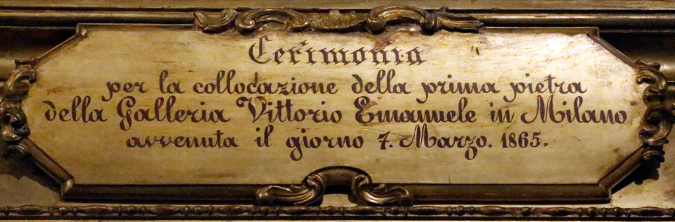 Cerimonia
per la collocazione della prima pietra
della Galleria Vittorio Emanuele in Milano
avvenuta il giorno 7. Marzo. 1865.